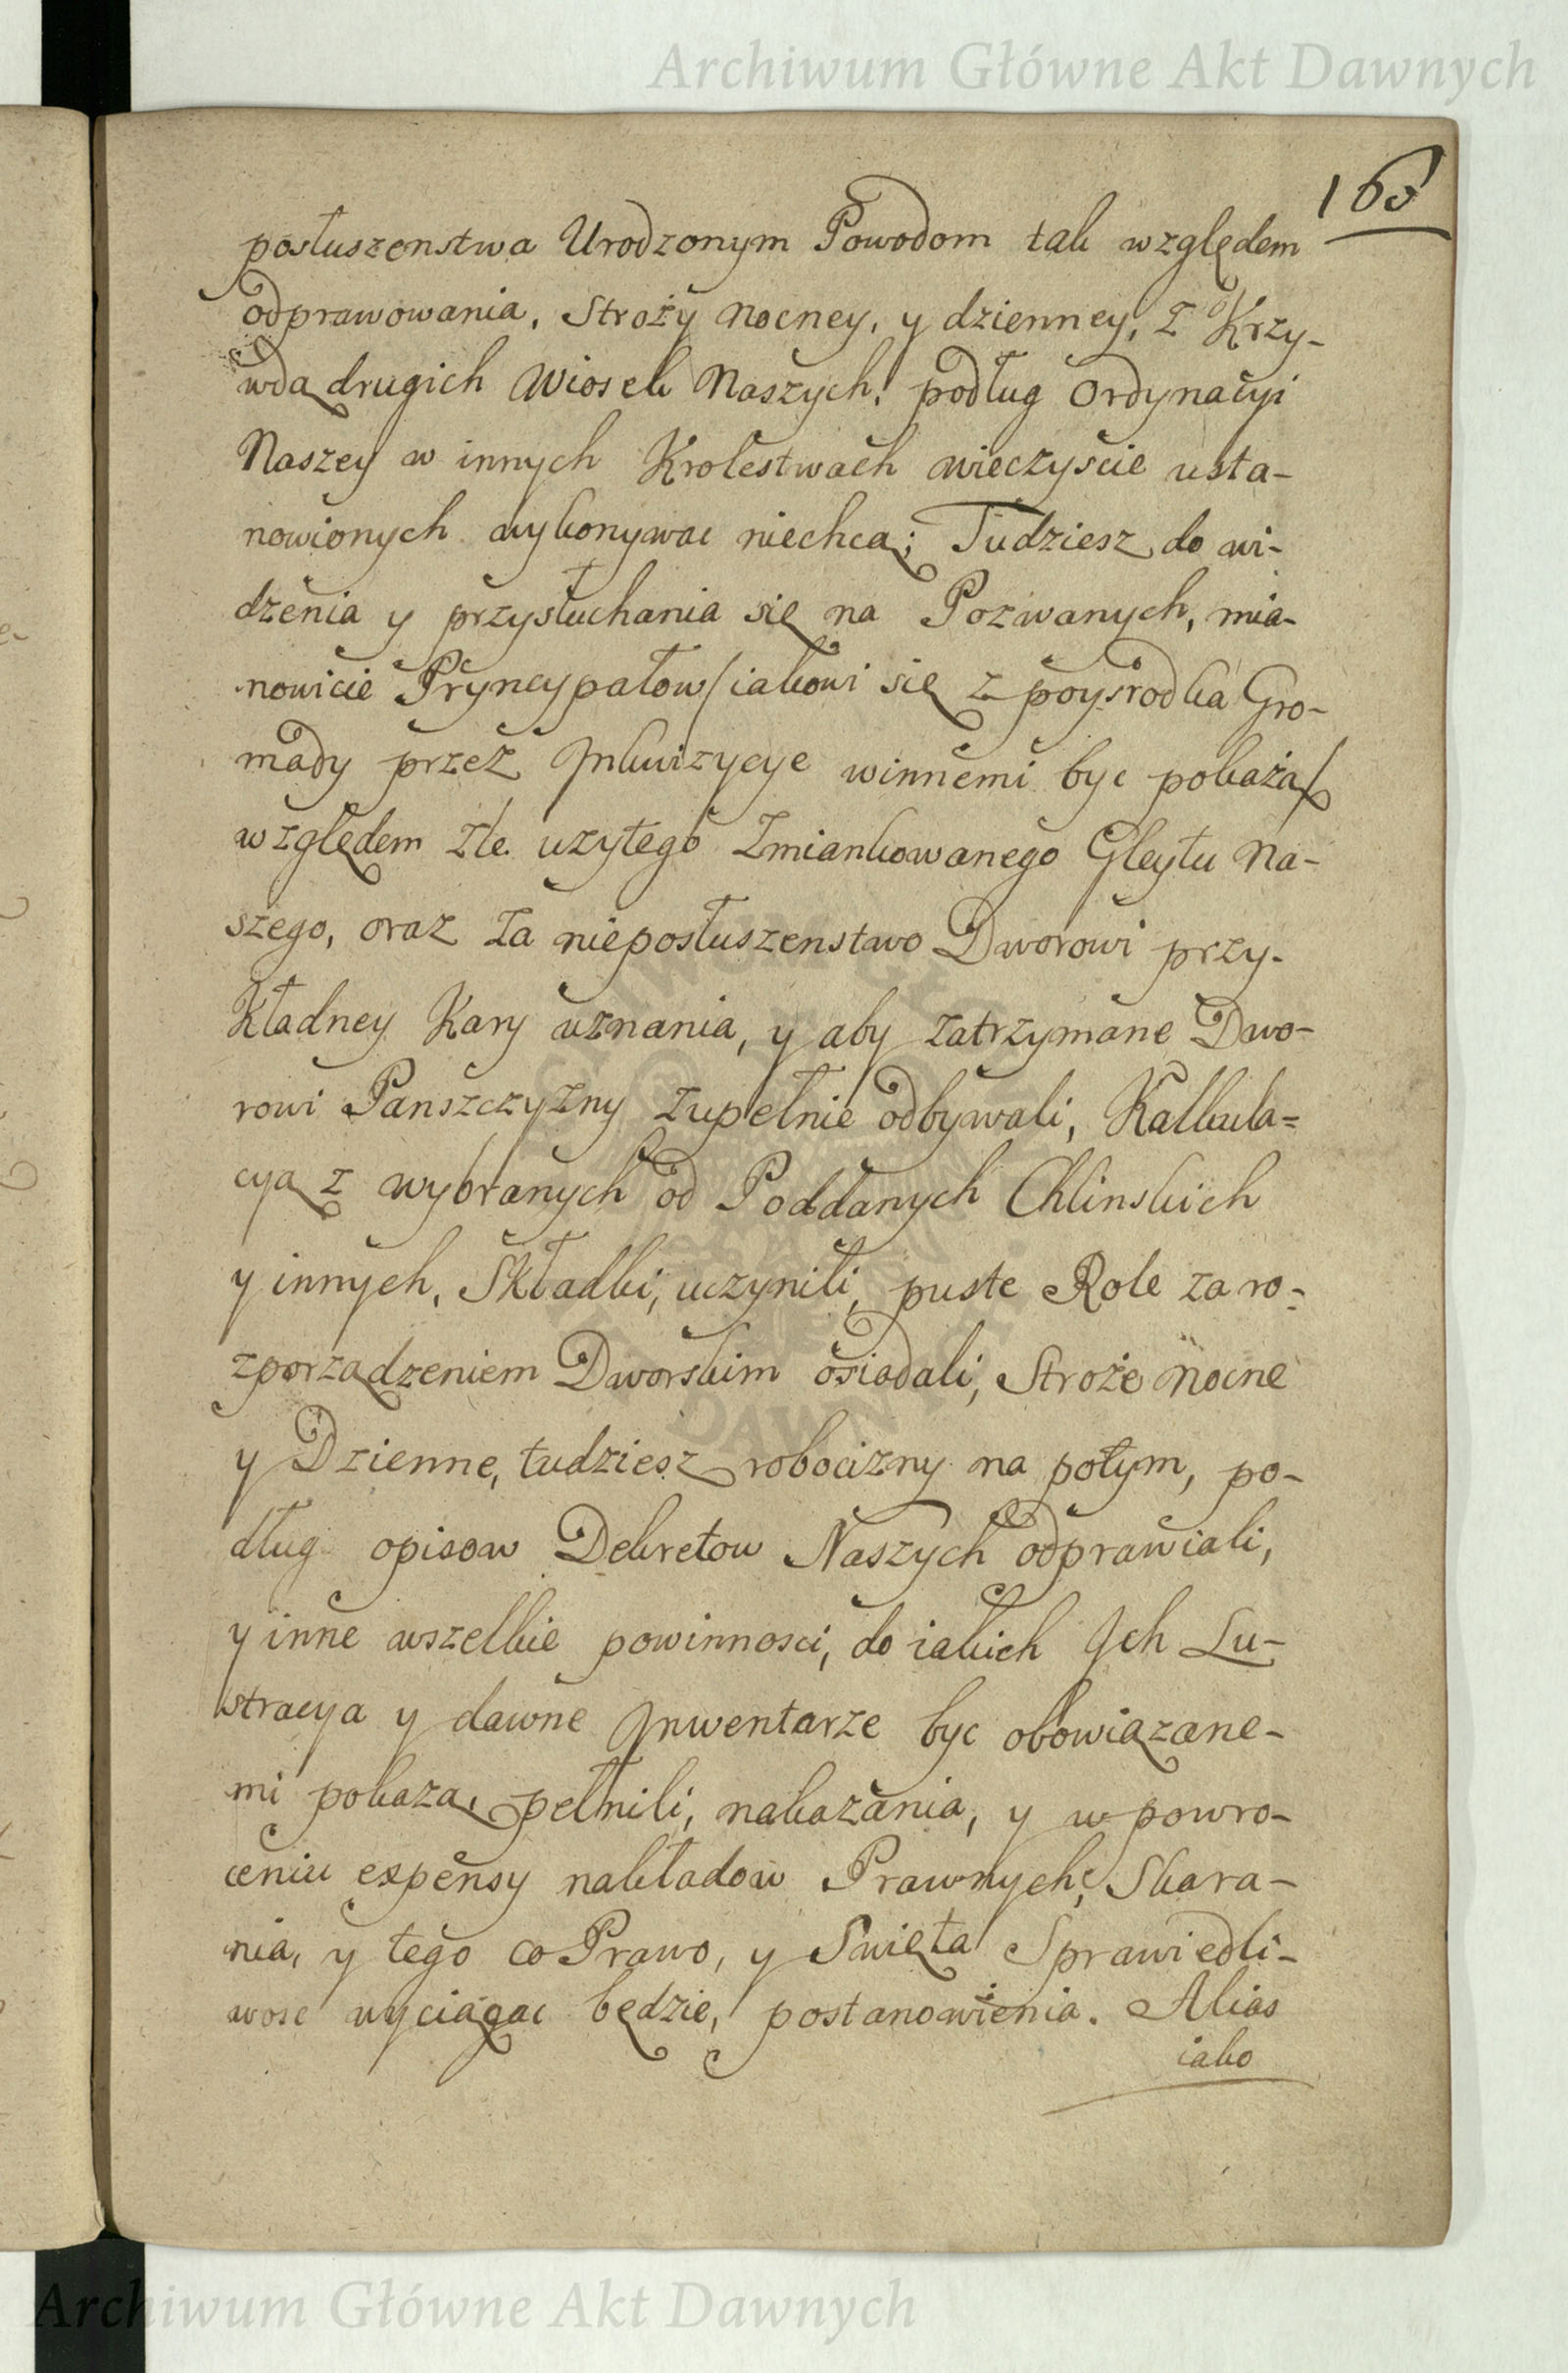 Archiwum Główne Akt Dawnych
163
posłuszenstwa Urodzonym Powodom tak względem
odprawowania, Stroży Nocney, y dzienney, z Krzy-
wdą drugich Wiosek Naszych, podług Ordynacyi
Naszey w innych Krolestwach wieczyscie usta-
nowionych wykonywac niechcą; Tudziesz do wi-
dzenia y przysłuchania się na Pozwanych, mia-
nowicie Pryncypałow/iakowi się z poysrodka Gro-
mady przez Inkwizycye winnemi byc pokażą/
względem zle uzytego Zmiankowanego Gleytu Na-
szego, oraz za nieposłuszenstwo Dworowi przy-
kładney Kary uznania, y aby zatrzymane Dwo-
rowi Panszczyzny zupełnie odbywali, Kalkula-
cyą z wybranych od Poddanych Chlinskich
y innych, Składki, uczynili, puste Role za ro-
zporządzeniem Dworskim osiadali, Stroże Nocne
y Dzienne, tudziesz robocizny na potym, po-
dług opisow Dekretow Naszych odprawiali,
y inne wszelkie powinnosci, do iakich Ich Lu-
stracya y dawne Inwentarze byc obowiązane-
mi pokażą, pełnili, nakazania, y w powro-
ceniu expensy nakładow Prawnych, Skara-
nia, y tego co Prawo, y Swięta Sprawiedli-
wosc wyciągac będzie, postanowienia. Alias
iako
Archiwum Główne Akt Dawnych